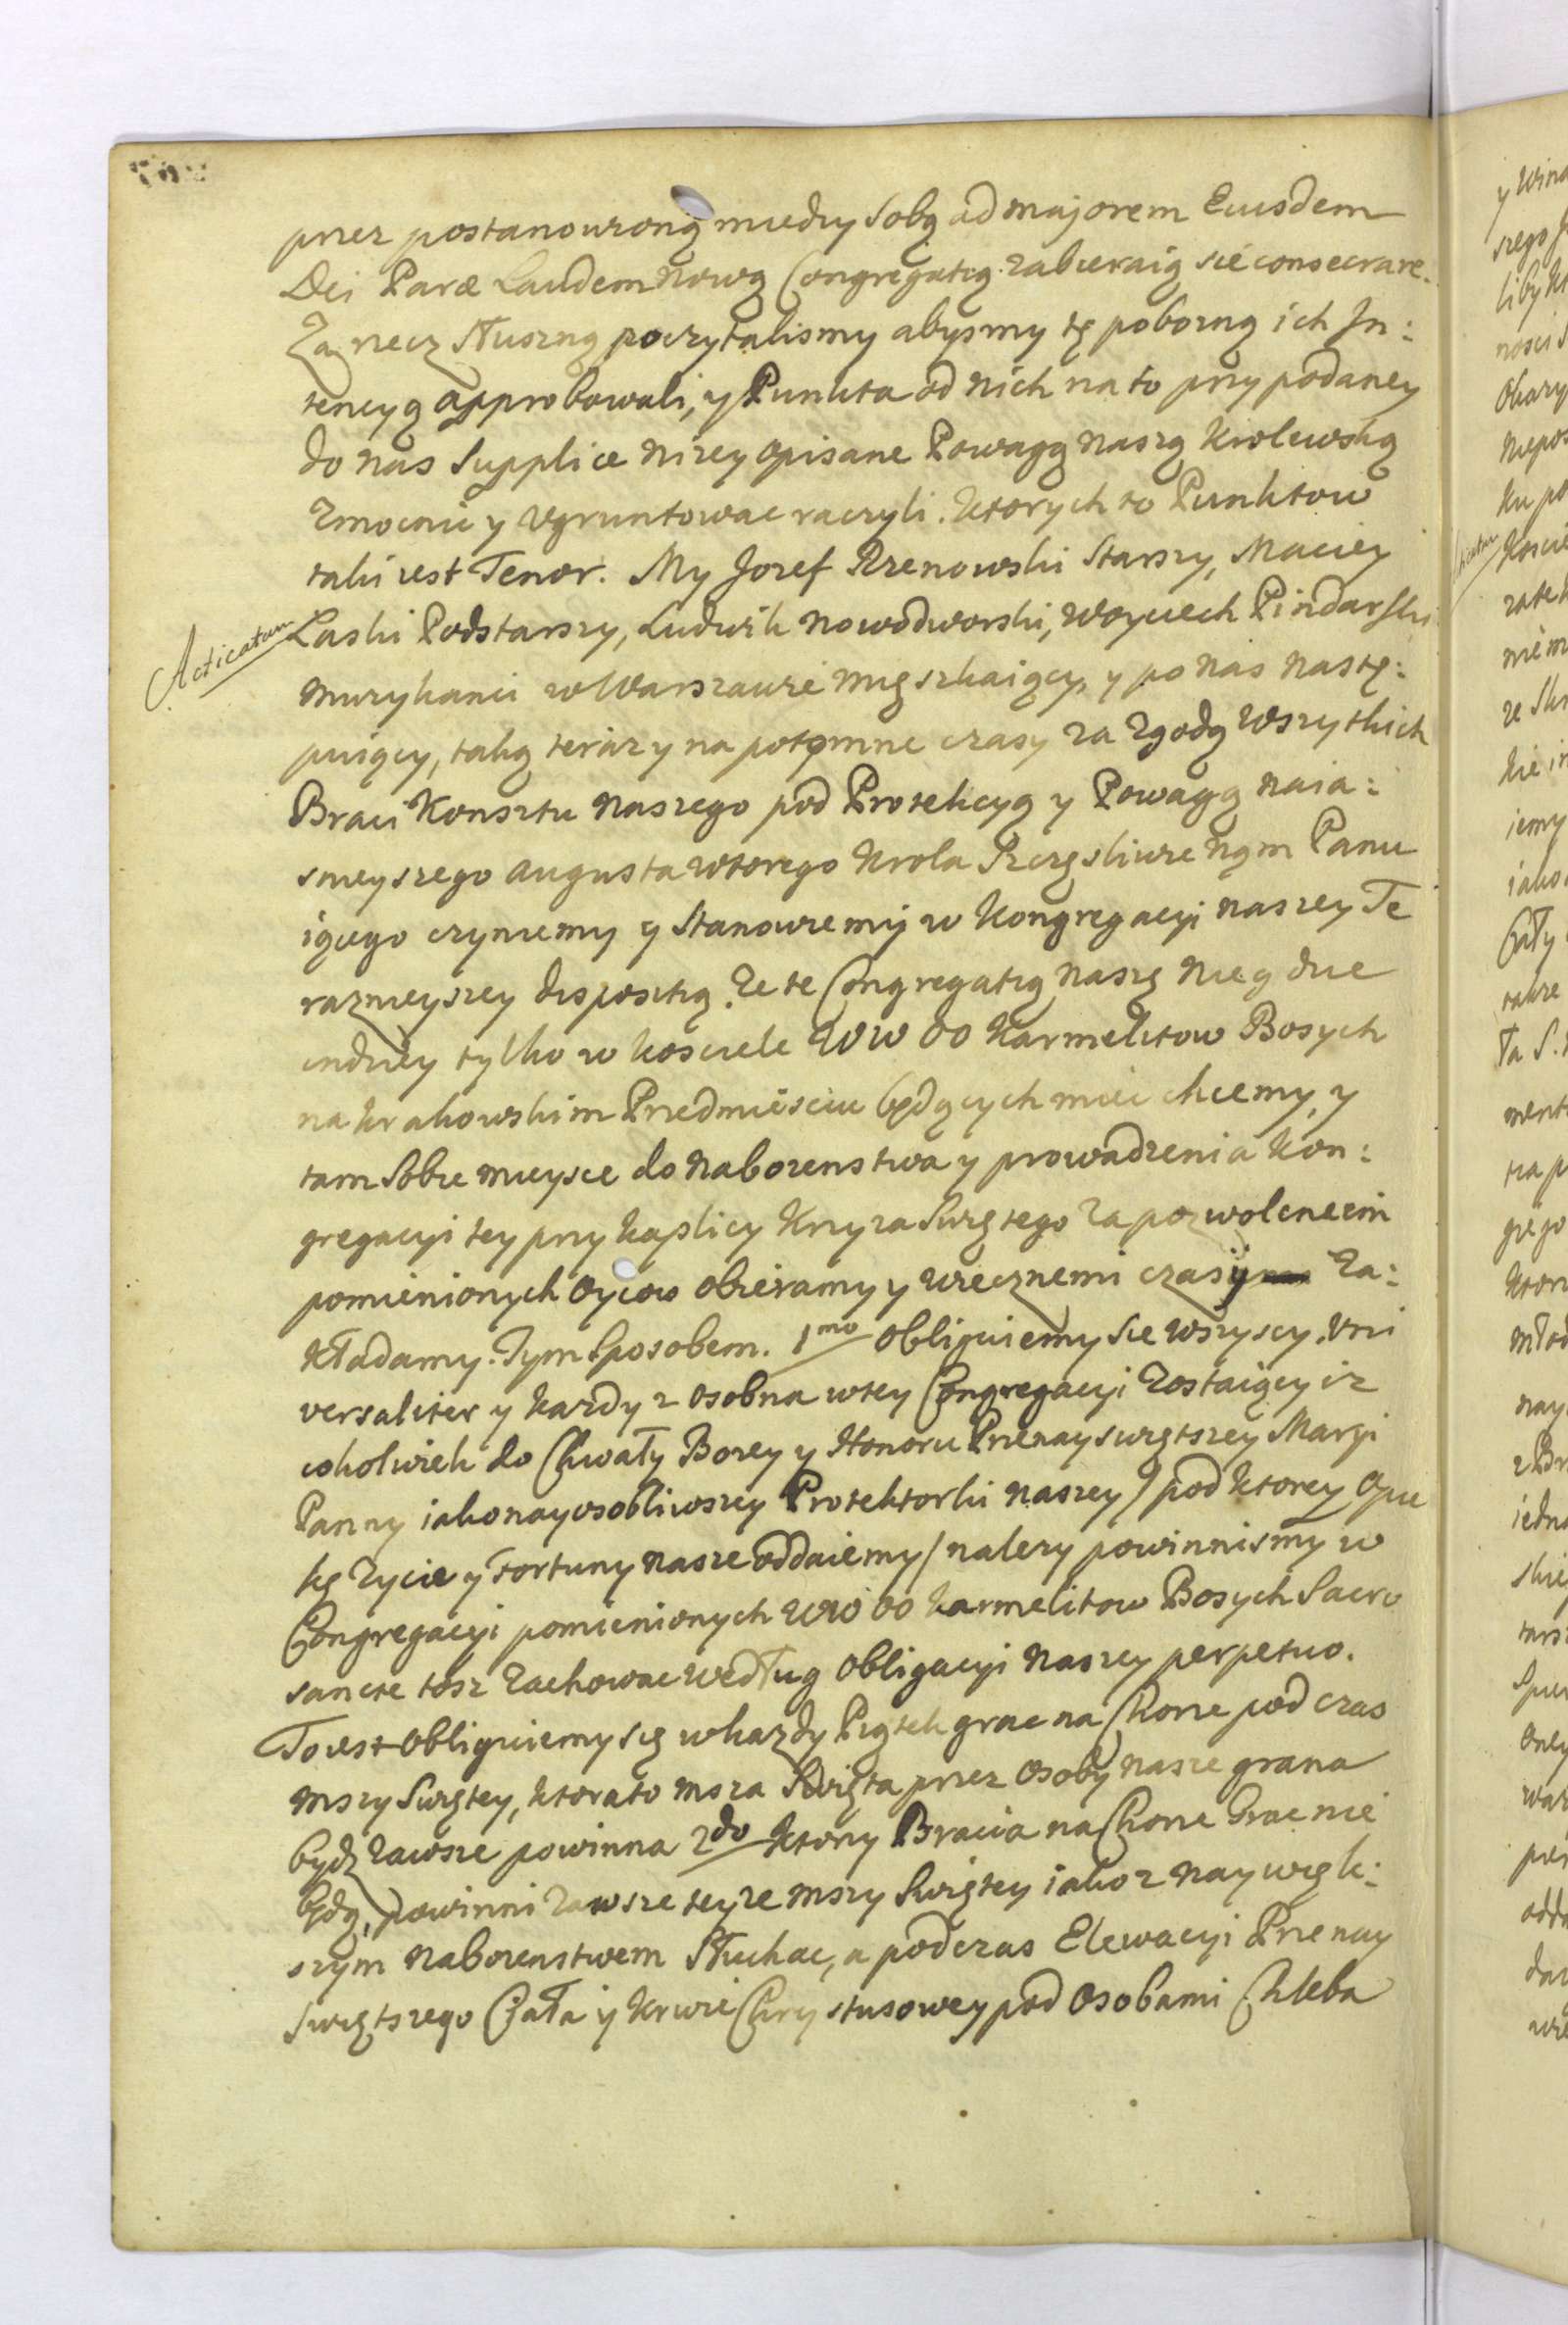 przez postanowioną miedzy Sobą ad majorem Eiusdem
Dei Paræ Laudem Nową Congregatią zabieraią sie consecrare.
Za rzecz Słuszną poczytalismy abysmy tę pobozną ich In:
tencyą approbowali, y Punkta od nich na to przy podaney
do nas Supplice nizey opisane Powagą naszą Krolewską
Zmocnic y Vgruntowac raczyli. Ktorych to Punktow
taki iest Tenor. My Jozef Rzenowski Starszy, Maciey
Acticatum
Laski Podstarszy, Ludwik Nowodworski, Woyciech Pindarski
Muzykanci w Warszawie mięszkaiący, y po nas nastę:
puiący, taką teraz y na potomne czasy za Zgodą Wszytkich
Braci Konsztu Naszego pod Protekcyą y Powagą Naia:
snieyszego Augusta wtorego Krola Szczęsliwie Nąm Panu
iącego czyniemy y Stanowiemy w Kongregacyi naszey Te
raznieyszey dispositią. Ze te Congregatią naszę nie g dzie
indziey tylko w kosciele WW OO Karmelitow Bosych
na Krakowskim Przedmiesciu będących miec chcemy, y
tam Sobie mieysce do Nabozenstwa y prowadzenia Kon:
gregacyi tey przy kaplicy Krzyza Swiętego Za pozwoleneim
pomienionych Oycow obieramy y wiecznemi czasy Za:
kładamy. Tym Sposobem. 1mo Obliguiemy Sie wszyscy Vni
versaliter y kazdy z osobna w tey Congregacyi Zostaiący iz
cokolwiek do Chwały Bozey y Honoru Przenayswiętszey Maryi
Panny iako nayosobliwszey Protektorki naszey / pod ktorey Opie
kę Zycie y Fortuny nasze oddaiemy / nalezy powinnismy w
Congregacyi pomienionych WW OO karmelitow Bosych Sacro
sancte tosz Zachowac według Obligacyi Naszey perpetuo.
To iest Obliguiemy się w kazdy Piątek grac na Chorze pod czas
mszy Swiętey, ktora to msza Swięta przez Osoby nasze grana
bydz zawsze powinna 2do Ktorzy Bracia na Chorze Grac nie
będą, powinni zawsze teyze mszy Swiętey iako z naywięk:
szym Nabozenstwem Słuchac, a podczas Elewacyi Przenay
swiętszego Ciała y Krwie Chrystusowey pod Osobami Chleba